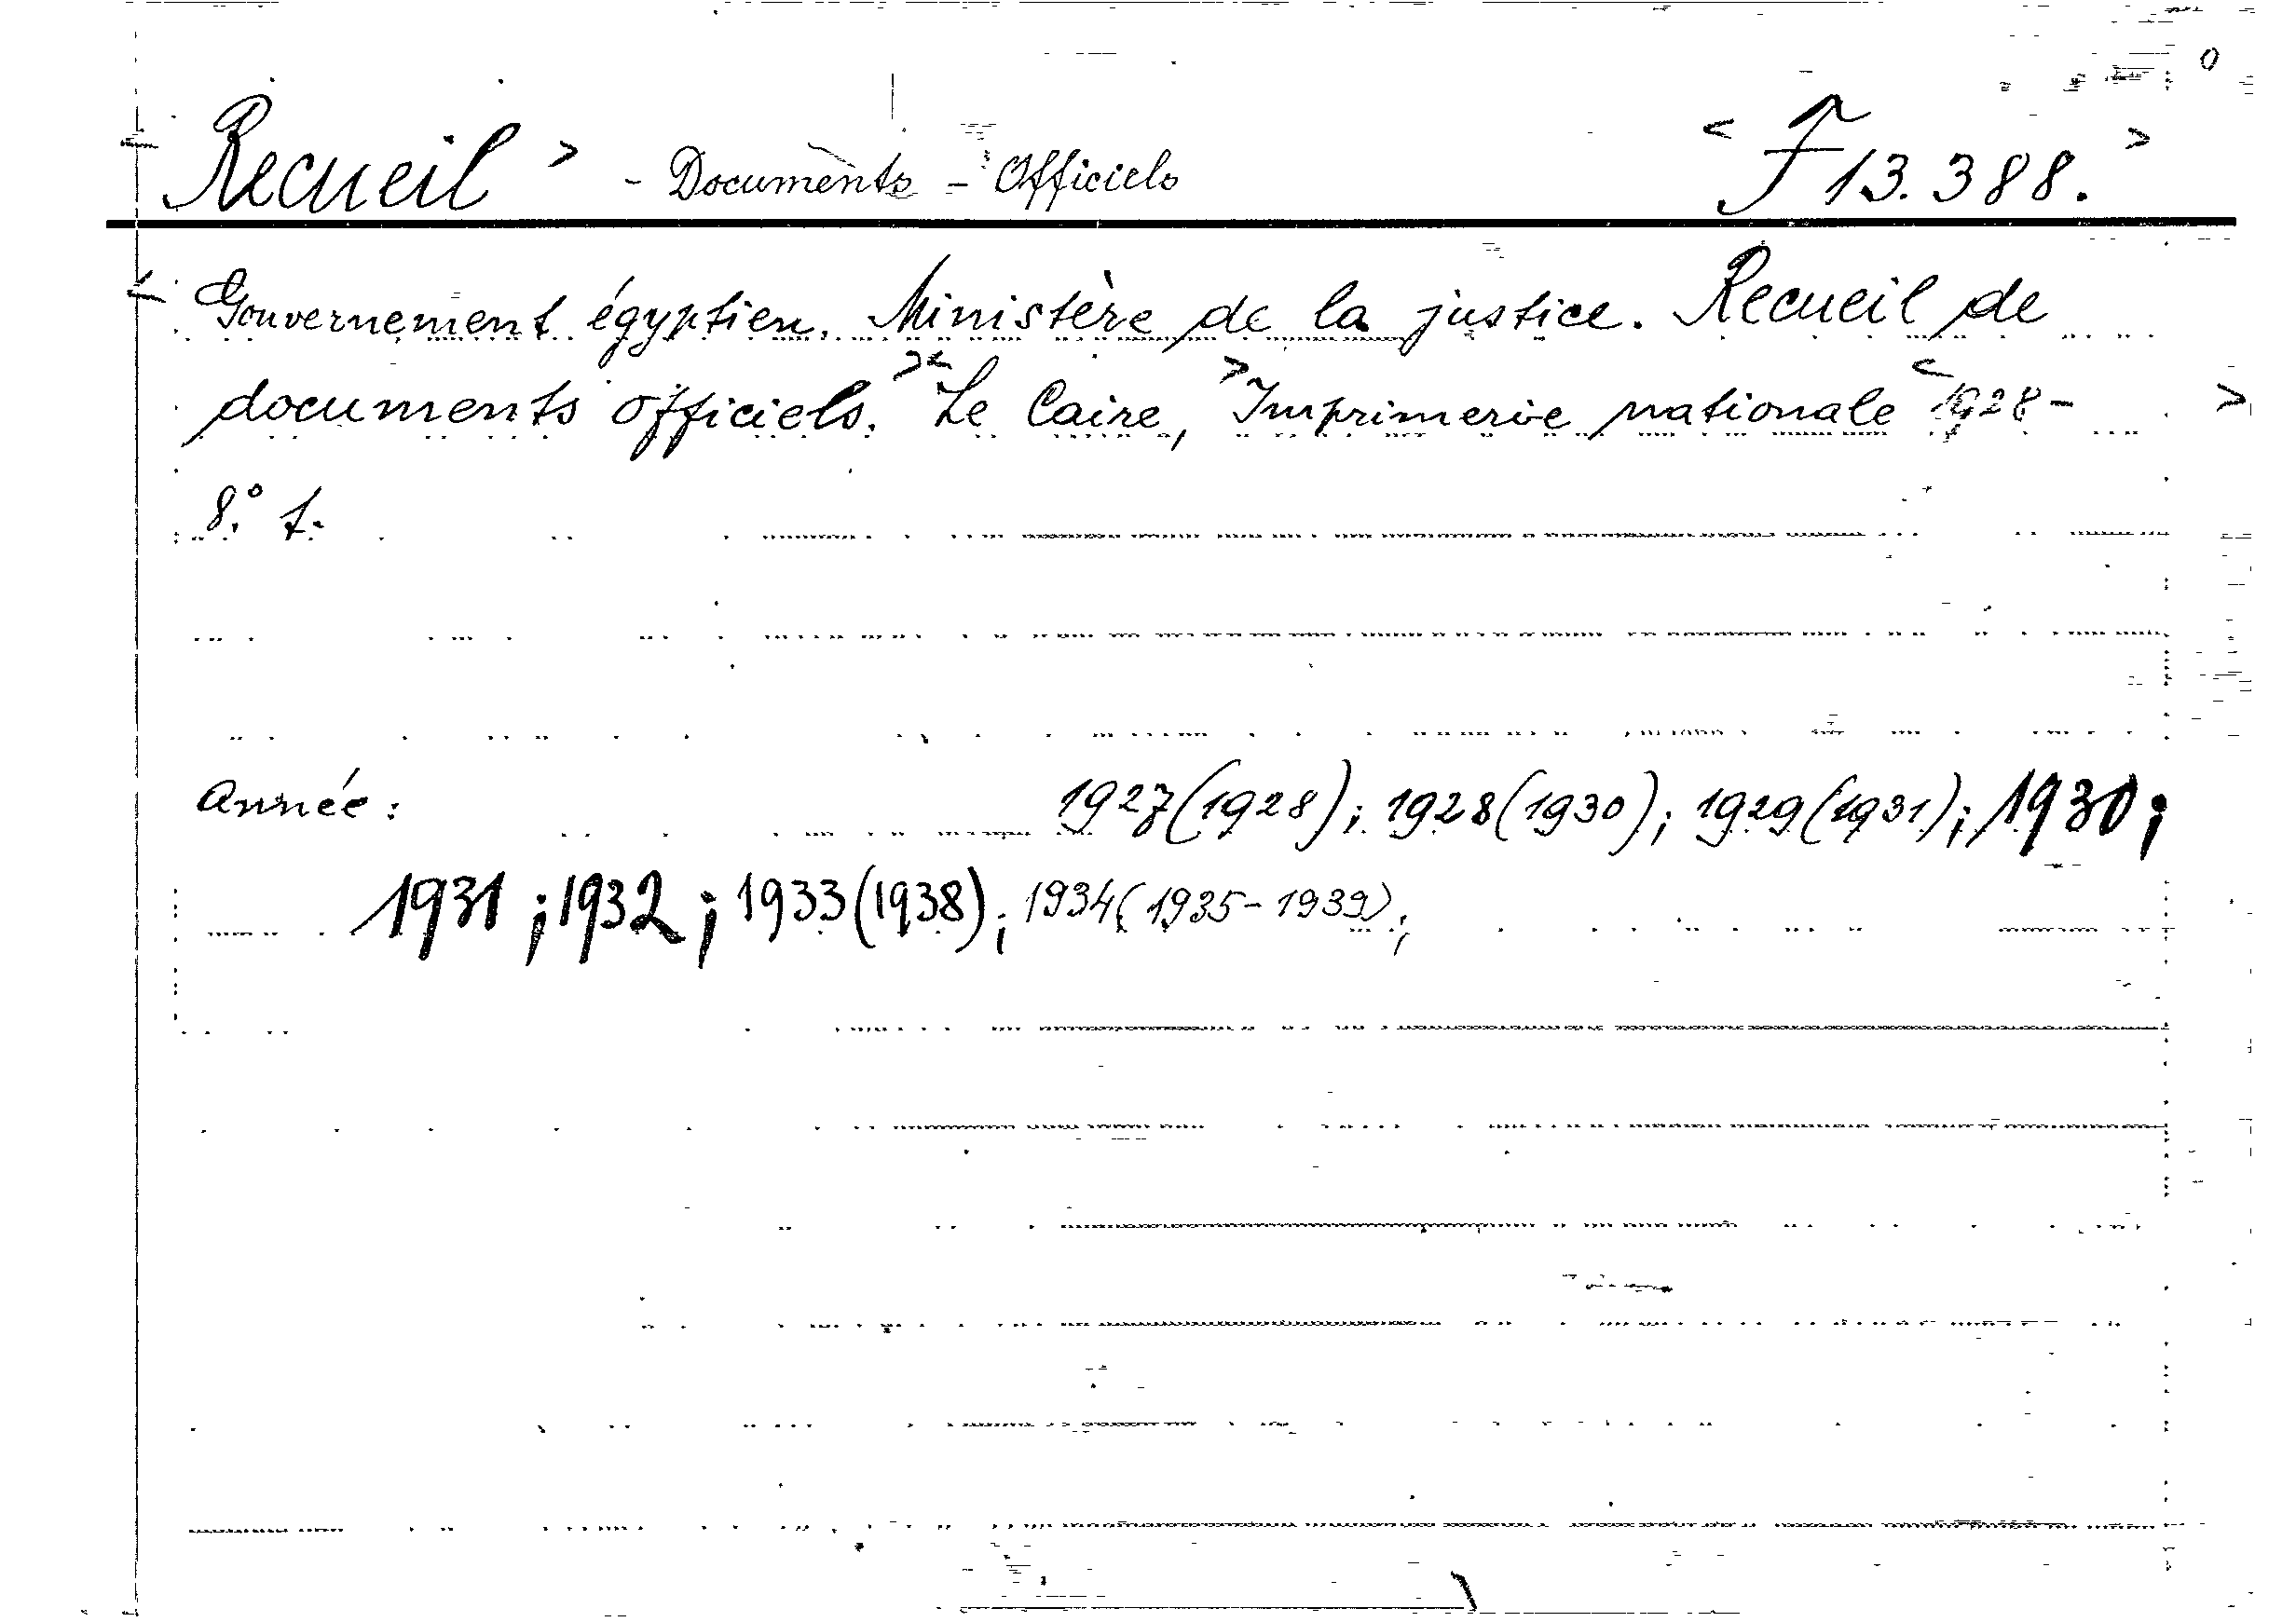 < Recueil > - Documents - Officiels < F 13.388. >
< Gouvernement égyptien. Ministère de la justice. Recueil de
documents officiels. >< Le Caire, > Imprimerie nationale < 1928 - >
8.° t.
Année : 1927 (1928) ; 1928 (1930) ; 1929 (1931) ; 1930 ;
1931 ; 1932 ; 1933 (1938) ; 1934 (1935-1939) ;